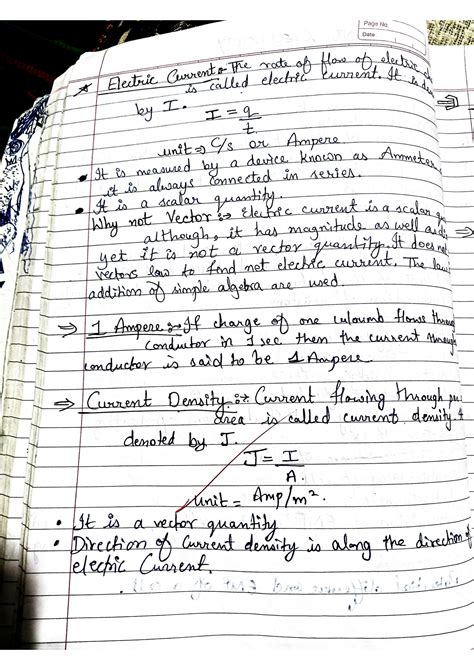 Page No.
Date
Electric Current :- The rate of flow of electric
is called electric current. It is
by I.
I = q
t.
unit ⇒ C/s or Ampere
• It is measured by a device known as Ammeter,
it is always connected in series.
• It is a scalar quantity.
Why not Vector :→ Electric current is a scalar
although, it has magnitude as well as
yet it is not a vector quantity. It does
vectors law to find net electric current. The
addition of simple algebra are used.
⇒ 1 Ampere :→ If charge of one culoumb flows
conductor in 1 sec then the current
conductor is said to be 1 Ampere.
⇒ Current Density :→ Current flowing through
area is called current density.
denoted by J.
J = I
A.
unit = Amp/m².
• It is a vector quantity
• Direction of Current density is along the direction
electric Current.